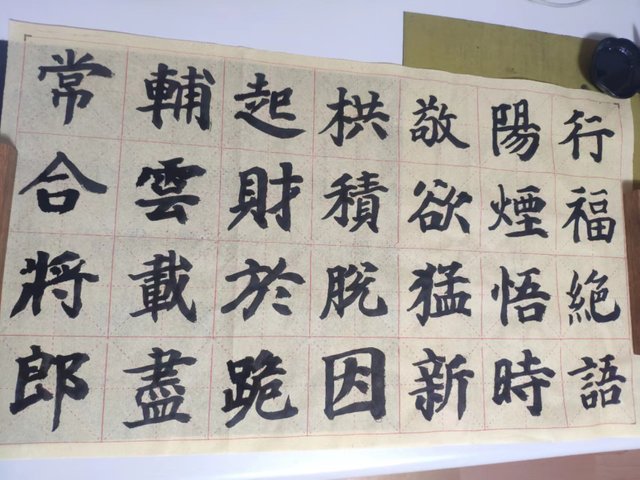 行福絶語
陽煙悟時
敬欲猛新
栱積脫因
起財於跪
輔雲載盡
常合將郎